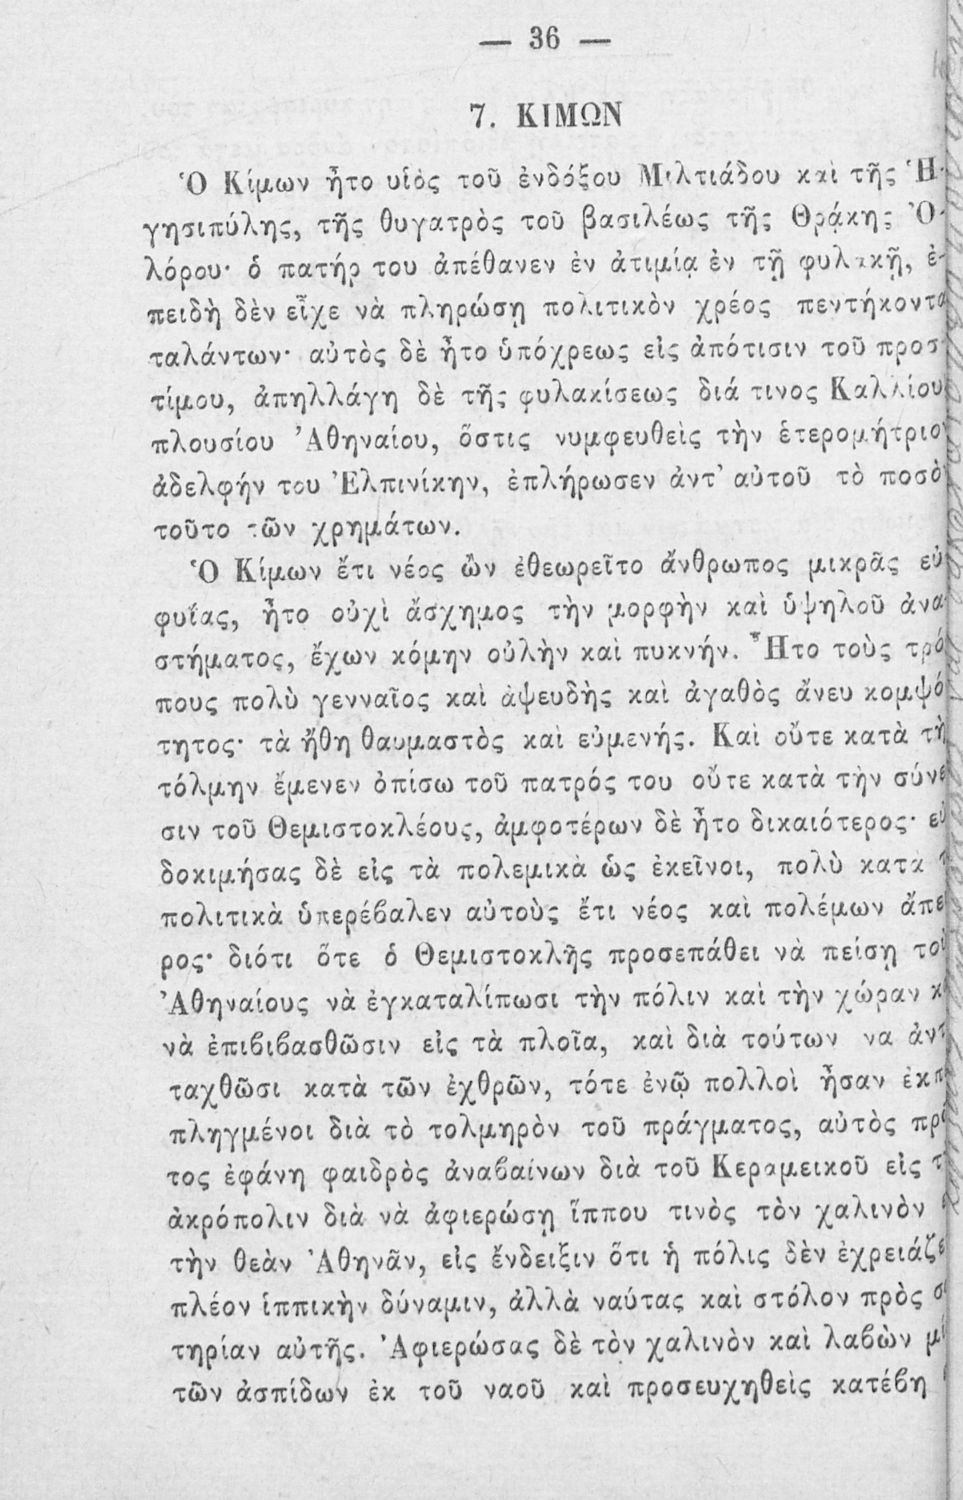 — 36 —
7. ΚΙΜΩΝ
Ὁ Κίμων ἦτο υἱὸς τοῦ ἐνδόξου Μιλτιάδου καὶ τῆς Ἡ-
γησιπύλης, τῆς θυγατρὸς τοῦ βασιλέως τῆς Θρᾴκης Ὀ-
λόρου· ὁ πατήρ του ἀπέθανεν ἐν ἀτιμίᾳ ἐν τῇ φυλακῇ, ἐ-
πειδὴ δὲν εἶχε νὰ πληρώσῃ πολιτικὸν χρέος πεντήκοντα
ταλάντων· αὐτὸς δὲ ἦτο ὑπόχρεως εἰς ἀπότισιν τοῦ προσ-
τίμου, ἀπηλλάγη δὲ τῆς φυλακίσεως διά τινος Καλλίου
πλουσίου Ἀθηναίου, ὅστις νυμφευθεὶς τὴν ἑτερομήτριο
ἀδελφήν του Ἐλπινίκην, ἐπλήρωσεν ἀντ' αὐτοῦ τὸ ποσὸ
τοῦτο τῶν χρημάτων.
Ὁ Κίμων ἔτι νέος ὢν ἐθεωρεῖτο ἄνθρωπος μικρᾶς εὐ
φυΐας, ἦτο οὐχὶ ἄσχημος τὴν μορφὴν καὶ ὑψηλοῦ ἀνα
στήματος, ἔχων κόμην οὐλὴν καὶ πυκνήν. Ἦτο τοὺς τρό
πους πολὺ γενναῖος καὶ ἀψευδὴς καὶ ἀγαθὸς ἄνευ κομψό
τητος· τὰ ἤθη θαυμαστὸς καὶ εὐμενής. Καὶ οὔτε κατὰ τὴ
τόλμην ἔμενεν ὀπίσω τοῦ πατρός του οὔτε κατὰ τὴν σύνε
σιν τοῦ Θεμιστοκλέους, ἀμφοτέρων δὲ ἦτο δικαιότερος· εὐ
δοκιμήσας δὲ εἰς τὰ πολεμικὰ ὡς ἐκεῖνοι, πολὺ κατὰ
πολιτικὰ ὑπερέβαλεν αὐτοὺς ἔτι νέος καὶ πολέμων ἄπε
ρος· διότι ὅτε ὁ Θεμιστοκλῆς προσεπάθει νὰ πείσῃ το
Ἀθηναίους νὰ ἐγκαταλίπωσι τὴν πόλιν καὶ τὴν χώραν κ
νὰ ἐπιβιβασθῶσιν εἰς τὰ πλοῖα, καὶ διὰ τούτων να ἀντ
ταχθῶσι κατὰ τῶν ἐχθρῶν, τότε ἐνῷ πολλοὶ ἦσαν ἐκπ
πληγμένοι διὰ τὸ τολμηρὸν τοῦ πράγματος, αὐτὸς πρ
τος ἐφάνη φαιδρὸς ἀναβαίνων διὰ τοῦ Κεραμεικοῦ εἰς τ
ἀκρόπολιν διὰ νὰ ἀφιερώσῃ ἵππου τινὸς τὸν χαλινὸν
τὴν θεὰν Ἀθηνᾶν, εἰς ἔνδειξιν ὅτι ἡ πόλις δὲν ἐχρειάζε
πλέον ἱππικὴν δύναμιν, ἀλλὰ ναύτας καὶ στόλον πρὸς σ
τηρίαν αὐτῆς. Ἀφιερώσας δὲ τὸν χαλινὸν καὶ λαβὼν μί
τῶν ἀσπίδων ἐκ τοῦ ναοῦ καὶ προσευχηθεὶς κατέβη